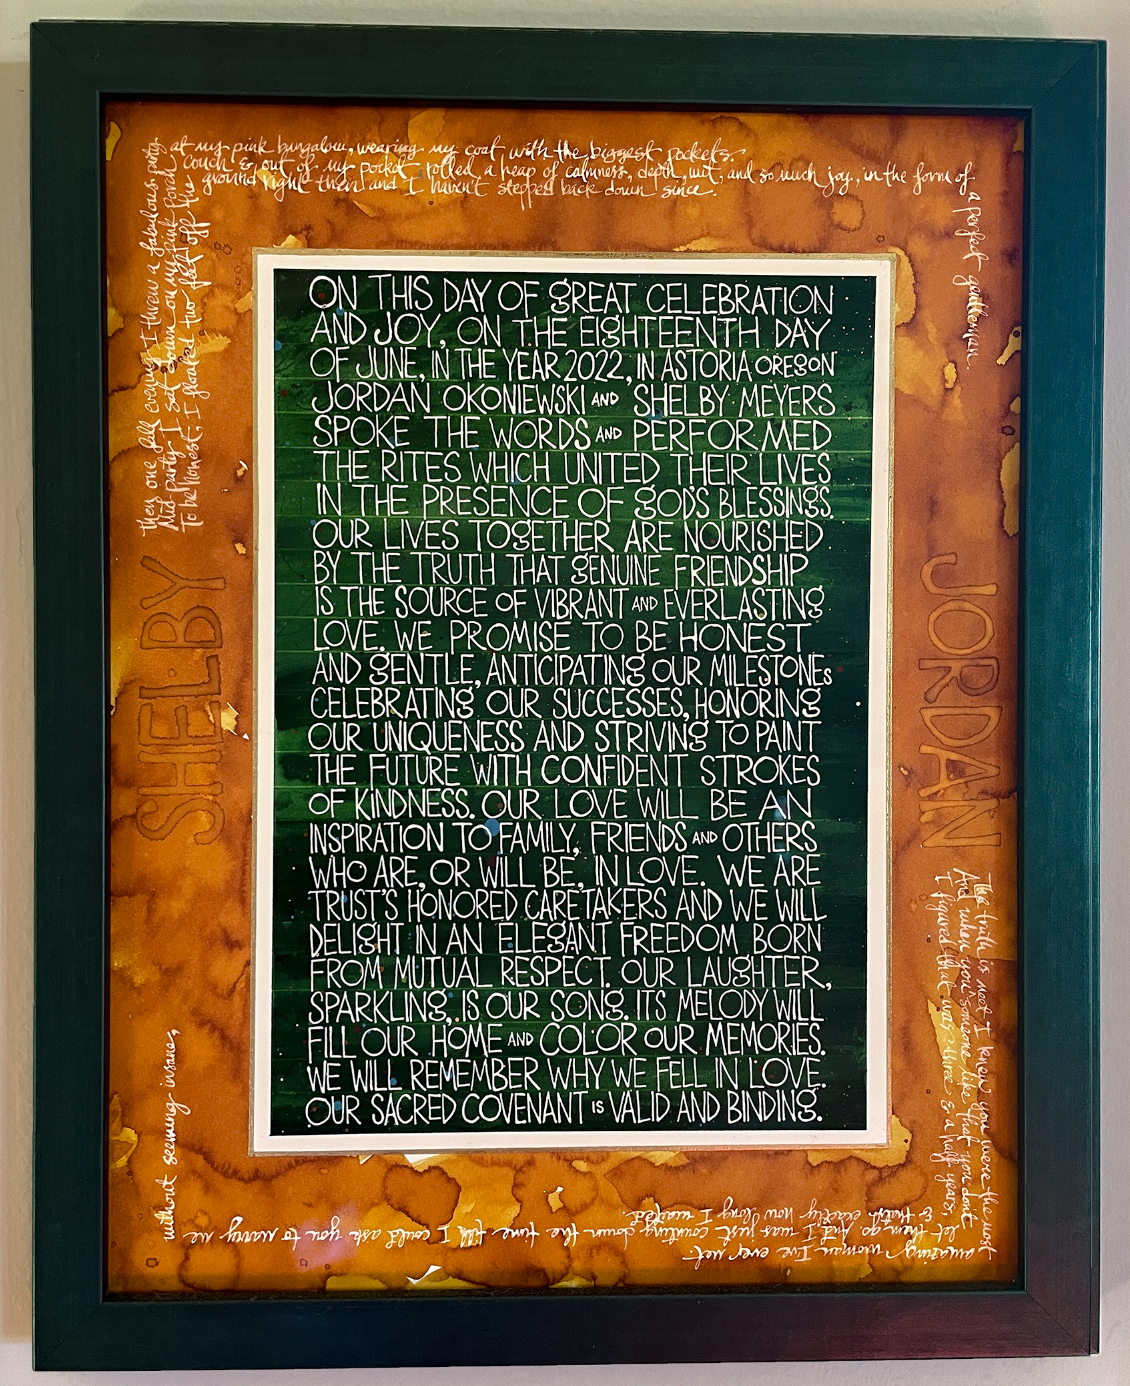 ON THIS DAY OF gREAT CELEBRATION
AND JOY, ON THE EIgHTEENTH DAY
OF JUNE, IN THE YEAR 2022, IN ASTORIA OREgON
JORDAN OKONIEWSKI AND SHELBY MEYERS
SPOKE THE WORDS AND PERFORMED
THE RITES WHICH UNITED THEIR LIVES
IN THE PRESENCE OF gOD'S BLESSINgS.
OUR LIVES TOgETHER ARE NOURISHED
BY THE TRUTH THAT gENUINE FRIENDSHIP
IS THE SOURCE OF VIBRANT AND EVERLASTINg
LOVE. WE PROMISE TO BE HONEST
AND gENTLE, ANTICIPATINg OUR MILESTONEs
CELEBRATINg OUR SUCCESSES, HONORINg
OUR UNIQUENESS AND STRIVINg TO PAINT
THE FUTURE WITH CONFIDENT STROKES
OF KINDNESS. OUR LOVE WILL BE AN
INSPIRATION TO FAMILY, FRIENDS AND OTHERS
WHO ARE, OR WILL BE, IN LOVE. WE ARE
TRUST'S HONORED CARETAKERS AND WE WILL
DELIgHT IN AN ELEgANT FREEDOM BORN
FROM MUTUAL RESPECT. OUR LAUgHTER,
SPARKLINg, IS OUR SONg. ITS MELODY WILL
FILL OUR HOME AND COLOR OUR MEMORIES.
WE WILL REMEMBER WHY WE FELL IN LOVE.
OUR SACRED COVENANT IS VALID AND BINDINg.
SHELBY
then one fall evening I threw a fabulous party
at my pink bungalow, wearing my coat with the biggest pockets.
Mid party I sat down on my pink porch
couch & out of my pocket rolled a heap of calmness, depth, wit, and so much joy, in the form of
a perfect gentleman.
To be honest, I floated two feet off the
ground right then and I haven't stepped back down since.
JORDAN
The truth is next I knew you were the most
amazing woman I've ever met.
And when you someone like that you don't
let them go but I was just counting down the time till I could ask you to marry me
without seeming insane,
I figured that was three & a half years,
& that's exactly how long I waited.